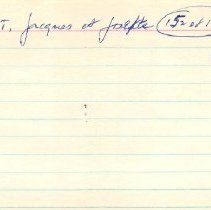 T. Jacques et Josephte